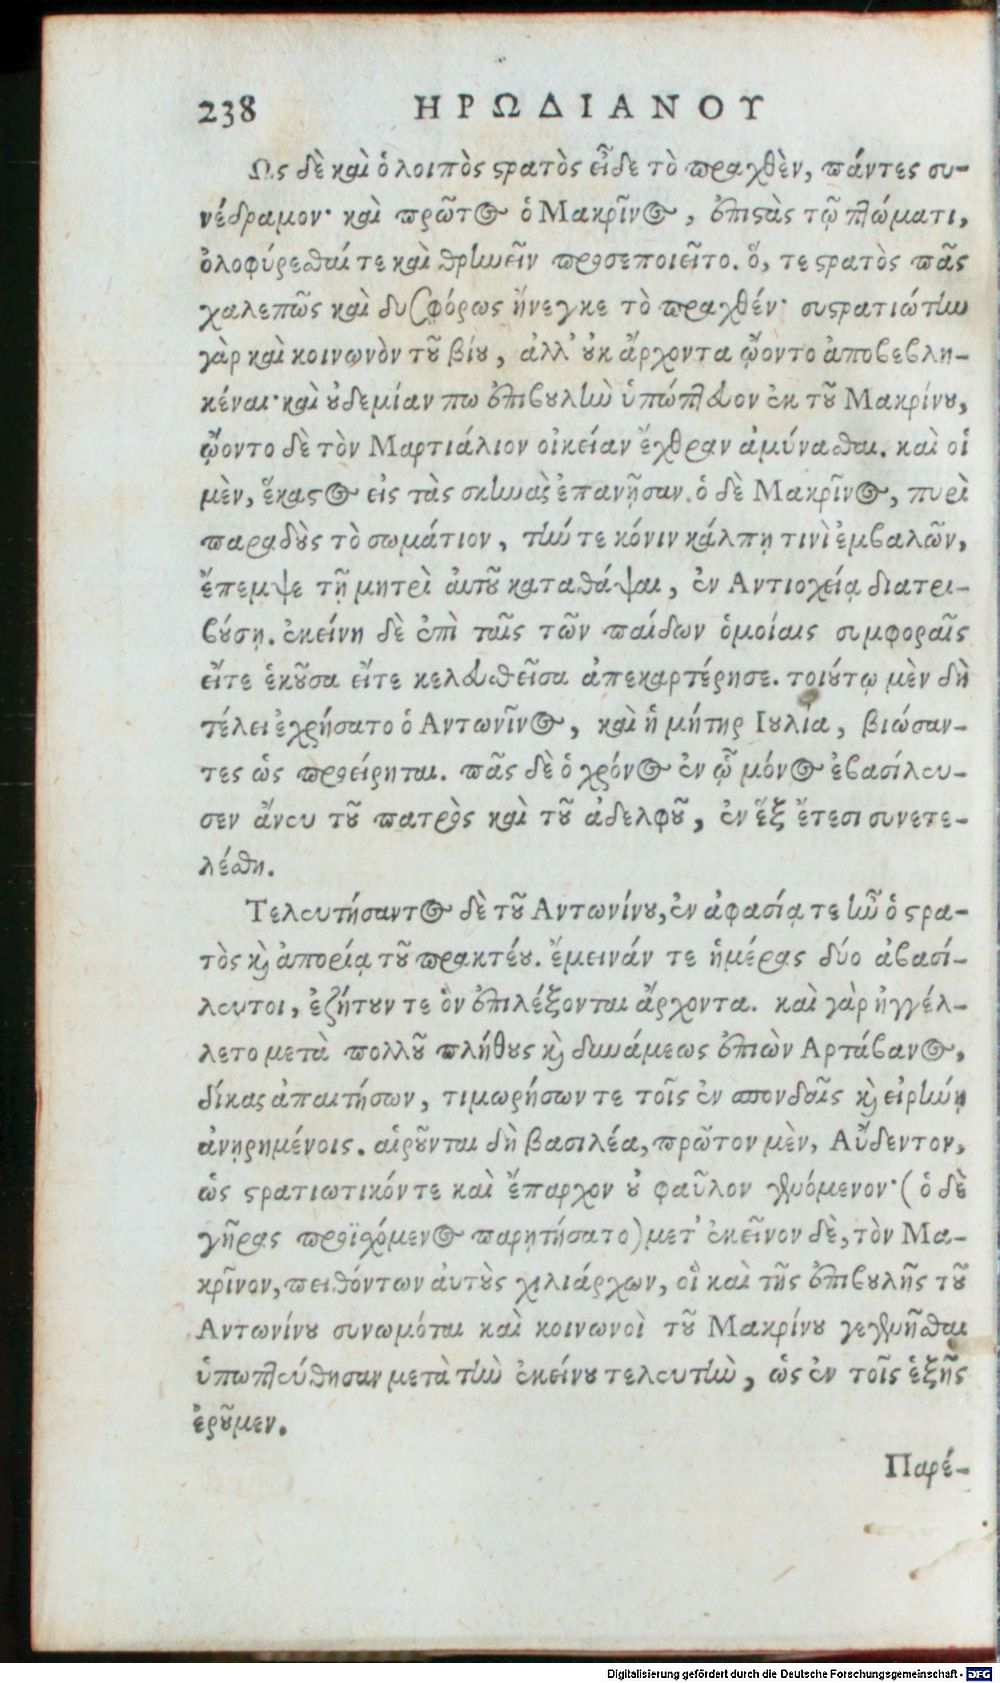 238 ΗΡΩΔΙΑΝΟΥ
Ως δὲ καὶ ὁ λοιπὸς στρατὸς εἶδε τὸ πραχθὲν, πάντες συ-
νέδραμον· καὶ πρῶτος ὁ Μακρῖνος, ἐπιστὰς τῷ πτώματι,
ὀλοφύρεσθαί τε καὶ θρηνεῖν προσεποιεῖτο. ὅ, τε στρατὸς πᾶς
χαλεπῶς καὶ δυσφόρως ἤνεγκε τὸ πραχθέν· συστρατιώτην
γὰρ καὶ κοινωνὸν τοῦ βίου, ἀλλ' οὐκ ἄρχοντα ᾤοντο ἀποβεβλη-
κέναι· καὶ οὐδεμίαν πω ἐπιβουλὴν ὑπώπτευον ἐκ τοῦ Μακρίνου,
ᾤοντο δὲ τὸν Μαρτιάλιον οἰκείαν ἔχθραν ἀμύνασθαι. καὶ οἱ
μὲν, ἕκαστος εἰς τὰς σκηνὰς ἐπανῇσαν. ὁ δὲ Μακρῖνος, πυρὶ
παραδοὺς τὸ σωμάτιον, τήν τε κόνιν κάλπῃ τινὶ ἐμβαλῶν,
ἔπεμψε τῇ μητρὶ αὐτοῦ καταθάψαι, ἐν Αντιοχείᾳ διατρι-
βούσῃ. ἐκείνη δὲ ἐπὶ ταῖς τῶν παίδων ὁμοίαις συμφοραῖς
εἴτε ἑκοῦσα εἴτε κελευσθεῖσα ἀπεκαρτέρησε. τοιούτῳ μὲν δὴ
τέλει ἐχρήσατο ὁ Αντωνῖνος, καὶ ἡ μήτηρ Ιουλία, βιώσαν-
τες ὡς προείρηται. πᾶς δὲ ὁ χρόνος ἐν ᾧ μόνος ἐβασίλευ-
σεν ἄνευ τοῦ πατρὸς καὶ τοῦ ἀδελφοῦ, ἐν ἓξ ἔτεσι συνετε-
λέσθη.
Τελευτήσαντος δὲ τοῦ Αντωνίνου, ἐν ἀφασίᾳ τε ἦν ὁ στρα-
τὸς καὶ ἀπορίᾳ τοῦ πρακτέου. ἔμεινάν τε ἡμέρας δύο ἀβασί-
λευτοι, ἐζήτουν τε ὃν ἐπιλέξονται ἄρχοντα. καὶ γὰρ ἠγγέλ-
λετο μετὰ πολλοῦ πλήθους καὶ δυνάμεως ἐπιὼν Αρτάβανος,
δίκας ἀπαιτήσων, τιμωρήσων τε τοῖς ἐν σπονδαῖς καὶ εἰρήνῃ
ἀνῃρημένοις. αἱροῦνται δὴ βασιλέα, πρῶτον μὲν, Αὔδεντον,
ὡς στρατιωτικόν τε καὶ ἔπαρχον οὐ φαῦλον γενόμενον· (ὁ δὲ
γῆρας προϊσχόμενος παρῃτήσατο) μετ' ἐκεῖνον δὲ, τὸν Μα-
κρῖνον, πειθόντων αὐτοὺς χιλιάρχων, οἳ καὶ τῆς ἐπιβουλῆς τοῦ
Αντωνίνου συνωμόται καὶ κοινωνοὶ τοῦ Μακρίνου γεγενῆσθαι
ὑπωπτεύθησαν μετὰ τὴν ἐκείνου τελευτὴν, ὡς ἐν τοῖς ἑξῆς
ἐροῦμεν.
Παρέ-
Digitalisierung gefördert durch die Deutsche Forschungsgemeinschaft - DFG